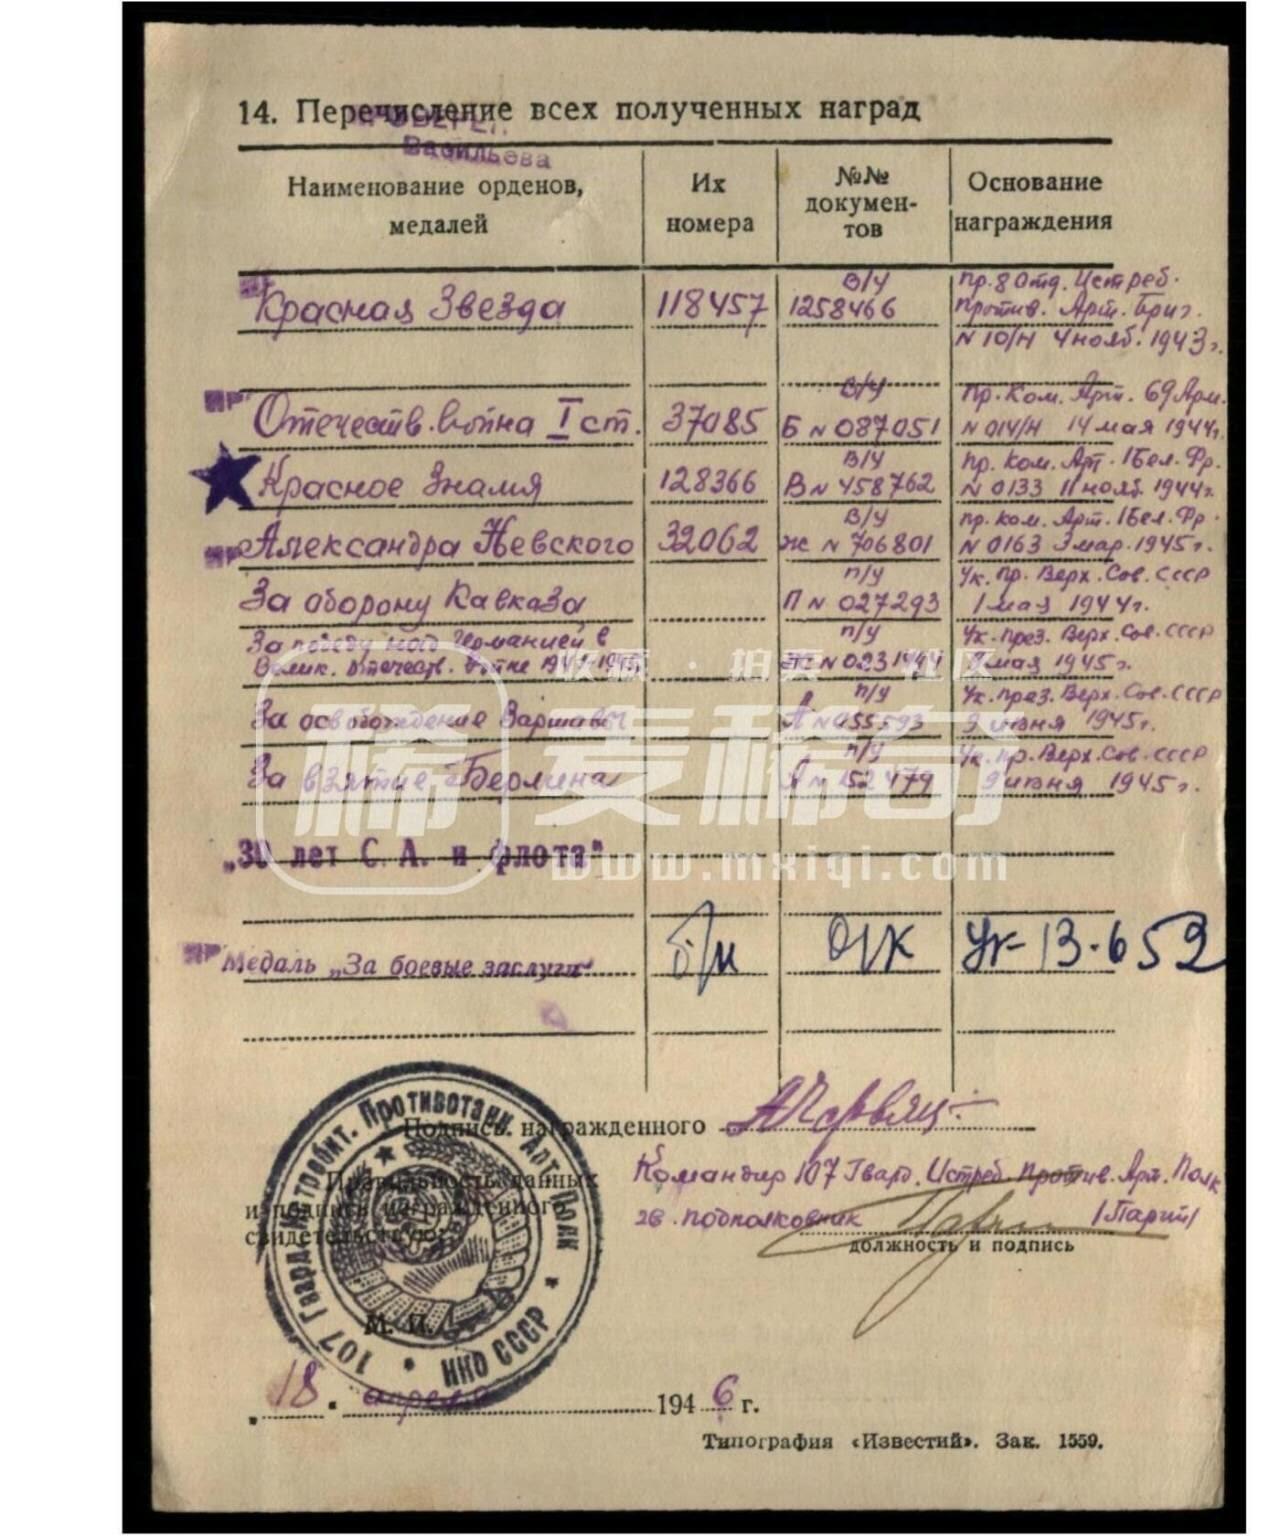 14. Перечисление всех полученных наград
ПРОВЕРЕН.
Васильева
Наименование орденов, медалей
Их номера
№№ докумен-тов
Основание награждения
Красная Звезда 118457 В/У 1258466 Пр. 8 Отд. Истреб. Против. Арт. Бриг. N 10/Н 4 нояб. 1943 г.
ПР
Отечеств. Война I ст. 37085 В/У Б N 087051 Пр. Ком. Арт. 69 Арм. N 014/Н 14 мая 1944 г.
Красное Знамя 128366 В/У В N 458762 Пр. Ком. Арт. 1 Бел. Фр. N 0133 11 нояб. 1944 г.
Александра Невского 32062 В/У Ж N 706801 Пр. Ком. Арт. 1 Бел. Фр. N 0163 3 мар. 1945 г.
За оборону Кавказа П/У П N 027293 Ук. Пр. Верх. Сов. СССР 1 мая 1944 г.
За победу над Германией в Велик. Отечеств. войне 1941-1945 П/У Ук. През. Верх. Сов. СССР 9 мая 1945 г.
За освобождение Варшавы П/У А N 055593 Ук. През. Верх. Сов. СССР 9 июня 1945 г.
За взятие Берлина П/У А N 152479 Ук. Пр. Верх. Сов. СССР 9 июня 1945 г.
收藏 · 拍卖 · 社区
稀 麦稀奇
www.mxiqi.com
„30 лет С. А. и флота"
ПР Медаль „За боевые заслуги" б/н О/К Ук-13.6 52
Подпись награжденного
Правильность данных и подпись награжденного свидетельствую:
Командир 107 Гвард. Истреб. Против. Арт. Полк
гв. подполковник /Парий/
должность и подпись
107 Гвард. Истребит. Противотанк. Арт. Полк
НКО СССР
М. П.
„18" апреля 1946 г.
Типография «Известий». Зак. 1559.